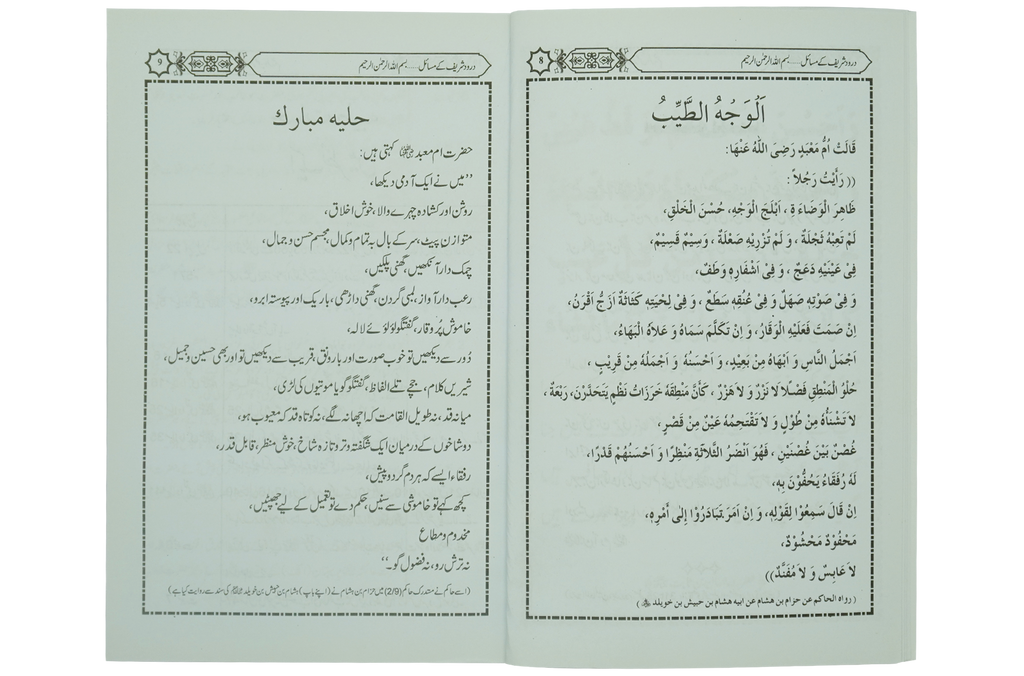 8
درود شریف کے مسائل.....بسم اللہ الرحمٰن الرحیم
اَلْوَجْهُ الطَّيِّبُ
قَالَتْ اُمُّ مَعْبَدٍ رَضِىَ اللهُ عَنْهَا :
(( رَأَيْتُ رَجُلاً :
ظَاهِرَ الْوَضَاءَةِ ، اَبْلَجَ الْوَجْهِ، حُسْنَ الْخَلْقِ،
لَمْ تَعِبْهُ ثَجْلَةٌ ، وَ لَمْ تُزْرِيْهِ صَعْلَةٌ ، وَسِيْمٌ قَسِيْمٌ،
فِىْ عَيْنَيْهِ دَعَجٌ ، وَ فِىْ اَشْفَارِهِ وَطَفٌ،
وَ فِىْ صَوْتِهِ صَهَلٌ وَ فِىْ عُنُقِهِ سَطَعٌ ، وَ فِىْ لِحْيَتِهِ كَثَاثَةٌ اَزَجُّ اَقْرَنُ،
اِنْ صَمَتَ فَعَلَيْهِ الْوَقَارُ، وَ اِنْ تَكَلَّمَ سَمَاهُ وَ عَلاَهُ الْبَهَاءُ،
اَجْمَلُ النَّاسِ وَ اَبْهَاهُ مِنْ بَعِيْدٍ، وَ اَحْسَنُهُ وَ اَجْمَلُهُ مِنْ قَرِيْبٍ ،
حُلْوُ الْمَنْطِقِ فَصْلاً لاَ نَزْرٌ وَ لاَ هَزْرٌ ، كَأَنَّ مَنْطِقَهُ خَرَزَاتُ نَظْمٍ يَتَحَدَّرْنَ، رَبْعَةٌ ،
لاَ تَشْنَأُهُ مِنْ طُوْلٍ وَ لاَ تَقْتَحِمُهُ عَيْنٌ مِنْ قَصْرٍ،
غُصْنٌ بَيْنَ غُصْنَيْنِ ، فَهُوَ اَنْضَرُ الثَّلاَثَةِ مَنْظَرًا وَ اَحْسَنُهُمْ قَدْرًا،
لَهُ رُفَقَاءُ يَحُفُّوْنَ بِهِ،
اِنْ قَالَ سَمِعُوْا لِقَوْلِهِ، وَ اِنْ اَمَرَ تَبَادَرُوْا إِلَى أَمْرِهِ،
مَحْفُوْدٌ مَحْشُوْدٌ،
لاَ عَابِسٌ وَ لاَ مُفَنَّدٌ))
( رواه الحاكم عن حزام بن هشام عن ابيه هشام بن حبيش بن خويلد )
9
درود شریف کے مسائل.....بسم اللہ الرحمٰن الرحیم
حلیہ مبارک
حضرت ام معبد رضی اللہ عنہا کہتی ہیں:
’’میں نے ایک آدمی دیکھا،
روشن اور کشادہ چہرے والا، خوش اخلاق،
متوازن پیٹ، سر کے بال بہ تمام و کمال، مجسم حسن و جمال،
چمک دار آنکھیں، گھنی پلکیں،
رعب دار آواز، لمبی گردن، گھنی داڑھی، باریک اور پیوستہ ابرو،
خاموش پُر وقار، گفتگو لؤلؤئے لالہ،
دُور سے دیکھیں تو خوب صورت اور بارونق، قریب سے دیکھیں تو اور بھی حسین و جمیل،
شیریں کلام، جچے تلے الفاظ، گفتگو گویا موتیوں کی لڑی،
میانہ قد، نہ طویل القامت کہ اچھا نہ لگے، نہ کوتاہ قد کہ معیوب ہو،
دو شاخوں کے درمیان ایک شگفتہ و تروتازہ شاخ، خوش منظر، قابل قدر،
رفقاء ایسے کہ ہر دم گرد و پیش،
کچھ کہے تو خاموشی سے سنیں، حکم دے تو تعمیل کے لیے جھپٹیں،
مخدوم و مطاع
نہ ترش رو، نہ فضول گو۔‘‘
(اسے حاکم نے مستدرک حاکم (2/9) میں حزام بن ہشام نے (اپنے باپ) ہشام بن حبیش بن خویلد کی سند سے روایت کیا ہے)